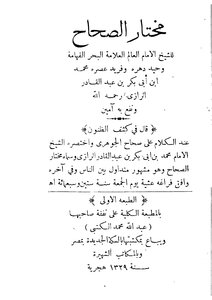 مختار الصحاح
للشيخ الامام العالم العلامة البحر الفهامة
وحيد دهره وفريد عصره محمد
ابن أبى بكر بن عبد القادر
الرازى رحمه الله
ونفع به آمين
﴿ قال فى كشف الظنون ﴾
عند الكلام على صحاح الجوهرى واختصره الشيخ
الامام محمد بن أبى بكر بن عبد القادر الرازى وسماه مختار
الصحاح وهو مشهور متداول بين الناس وفى آخره
وافق فراغه عشية يوم الجمعة سنة ستين وسبعمائة اه
﴿ الطبعة الاولى ﴾
بالمطبعة الكلية على نفقة صاحبها
( عبد الله محمد الكتبى )
ويباع بمكتبتها بالسكة الجديدة بمصر
وبالمكاتب الشهيرة
سنة ١٣٢٩ هجرية